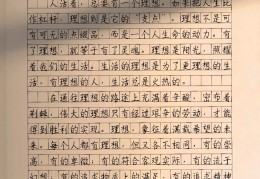 人活着，总要有一个理想。如果把人生比
作杠杆，理想则是它的“支点”。理想不是可
有可无的点缀品，而是一个人生命的动力，有
了理想，就等于有了灵魂。理想是阳光，照耀
着我们的生活。生活的理想是为了更理想的生
活。有理想的人，生活总是火热的。
在通往理想的路途上充满着辛酸，密布着
荆棘，伟大的理想只有经过艰辛的劳动，才能
得到胜利的实现。理想，象征着满载着希望的
未来。每个人都有理想，但又各不相同，有的崇
高，有的卑微，有的符合客观实际，有的流于
幻想，有的追求物质上的满足，有的追求精神